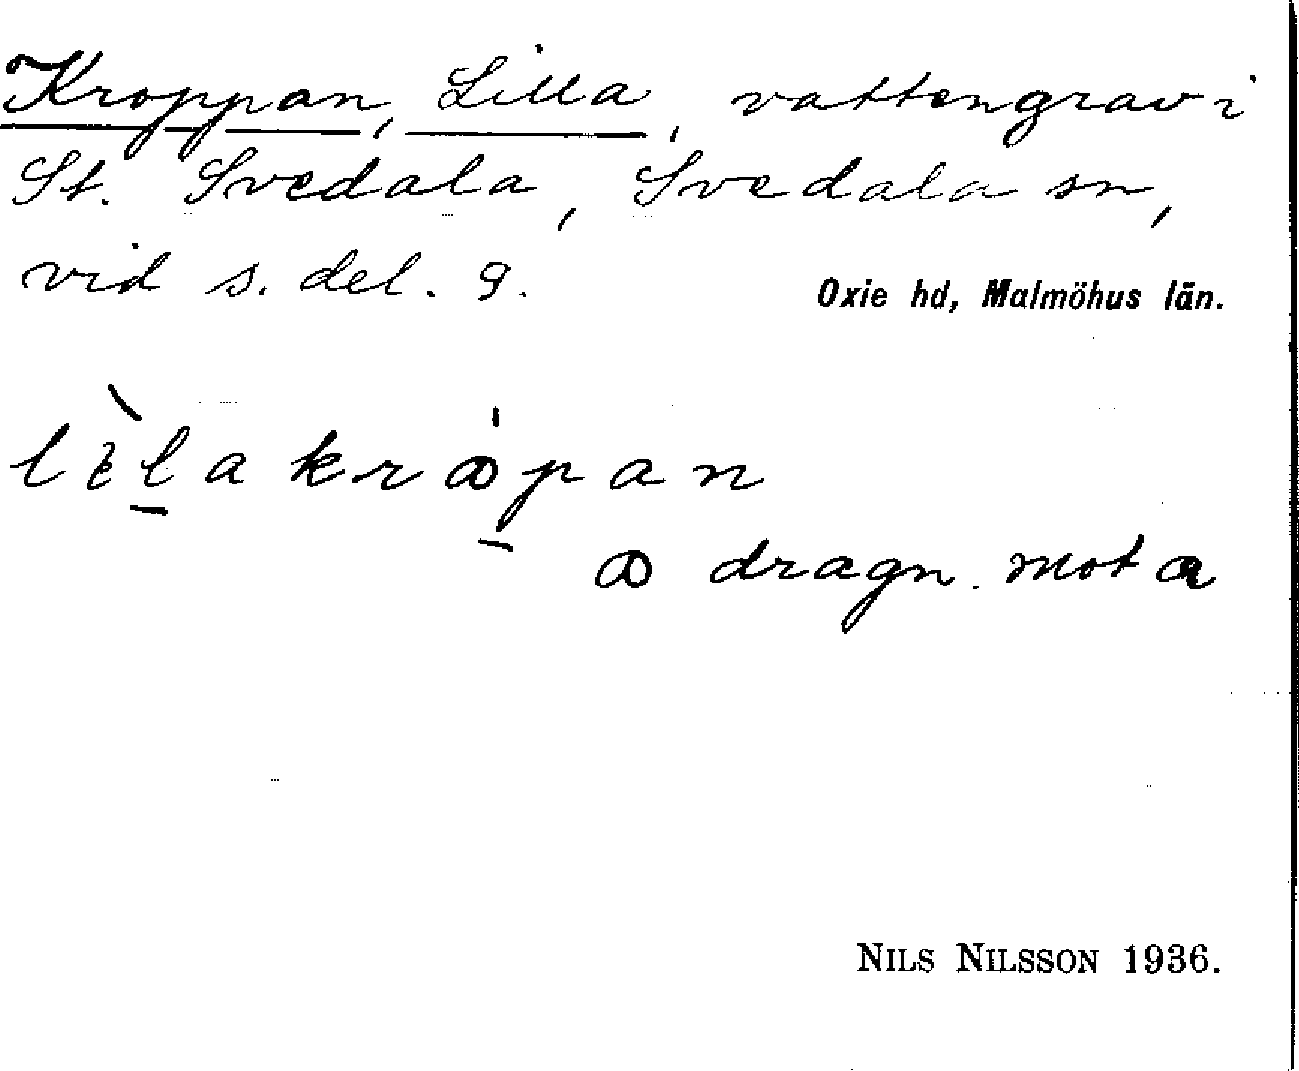 Kroppan, Lilla, vattengrav i
St. Svedala, Svedala sn,
vid s. del. 9.
Oxie hd, Malmöhus län.
lila kråpan
dragn. mot a
NILS NILSSON 1936.